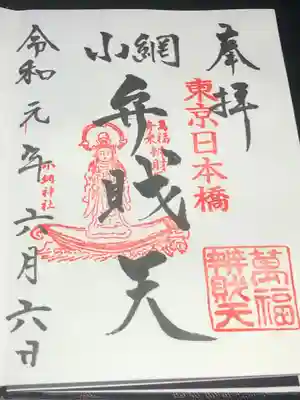 奉拝
東京日本橋
小網
弁財天
萬福
舟乗弁財天
小網神社
令和元年六月六日
萬福
辨財天